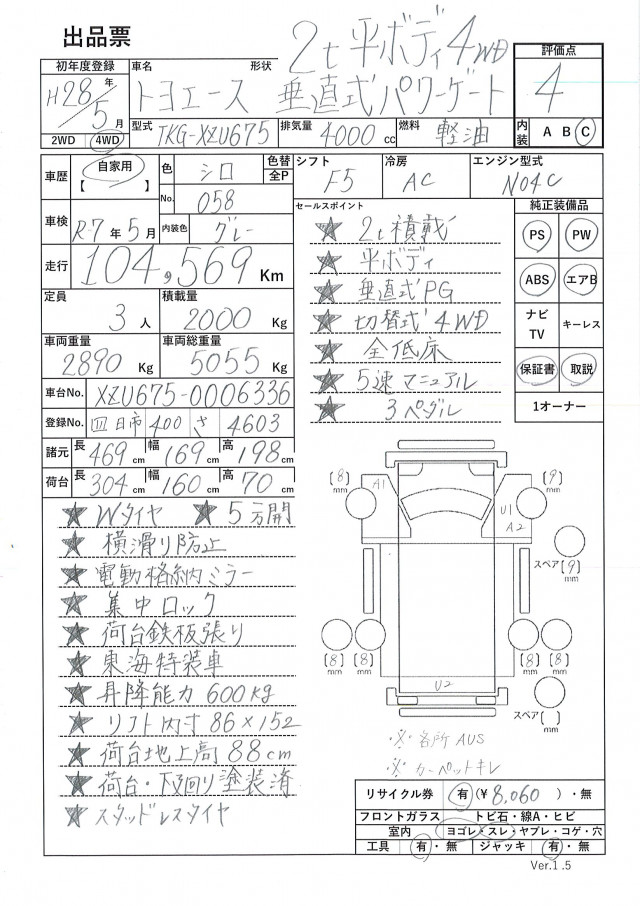 出品票
2t 平ボディ 4WD
初年度登録 車名 形状 評価点
H28年/5月 トヨエース 垂直式パワーゲート 4
2WD 4WD 型式 TKG-XZU675 排気量 4000cc 燃料 軽油 内装 A B C
車歴 自家用 【 】 色 シロ 色替 全P シフト F5 冷房 AC エンジン型式 N04C
No. 058
車検 R-7年5月 内装色 グレー
セールスポイント 純正装備品
走行 104,569 Km
定員 3人 積載量 2000 Kg
車両重量 2890 Kg 車両総重量 5055 Kg
車台No. XZU675-0006336
登録No. 四日市 400 さ 4603
諸元 長 469cm 幅 169cm 高 198cm
荷台 長 304cm 幅 160cm 高 70cm
★ 2t積載
★ 平ボディ
★ 垂直式PG
★ 切替式4WD
★ 全低床
★ 5速マニュアル
★ 3ペダル
PS PW
ABS エアB
ナビTV キーレス
保証書 取説
1オーナー
★ Wタイヤ ★ 5方開
★ 横滑り防止
★ 電動格納ミラー
★ 集中ロック
★ 荷台鉄板張り
★ 東海特装車
★ 昇降能力 600kg
★ リフト内寸 86×152
★ 荷台地上高 88cm
★ 荷台・下回り塗装済
★ スタッドレスタイヤ
〔8〕mm A1 〔9〕mm
U1
A2
スペア〔9〕mm
〔8〕mm 〔8〕mm 〔8〕mm 〔8〕mm
U2
スペア〔 〕mm
※ 各所 AUS
※ カーペットキレ
リサイクル券 有(¥8,060)・無
フロントガラス トビ石・線A・ヒビ
室内 ヨゴレ・スレ・ヤブレ・コゲ・穴
工具 有・無 ジャッキ 有・無
Ver.1.5